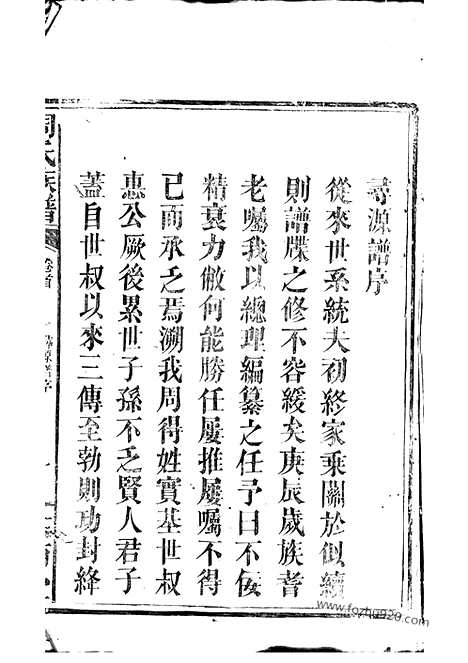 尋源譜序
從來世系統夫初終家乘關於似續
則譜牒之修不容緩矣庚辰歲族耆
老囑我以總理編纂之任予曰不佞
精衰力敝何能勝任屢推屢囑不得
已而承乏焉溯我周得姓實基世叔
惠公厥後累世子孫不乏賢人君子
蓋自世叔以來三傳至勃則功封絳
周氏族譜
卷首
尋源譜序
www.fozhu920.com